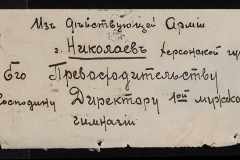 Изъ Дѣйствующей Арміи
г. Николаевъ Херсонской гу
Его Превосходительству
Господину Директору 1ой мужско
гимназіи